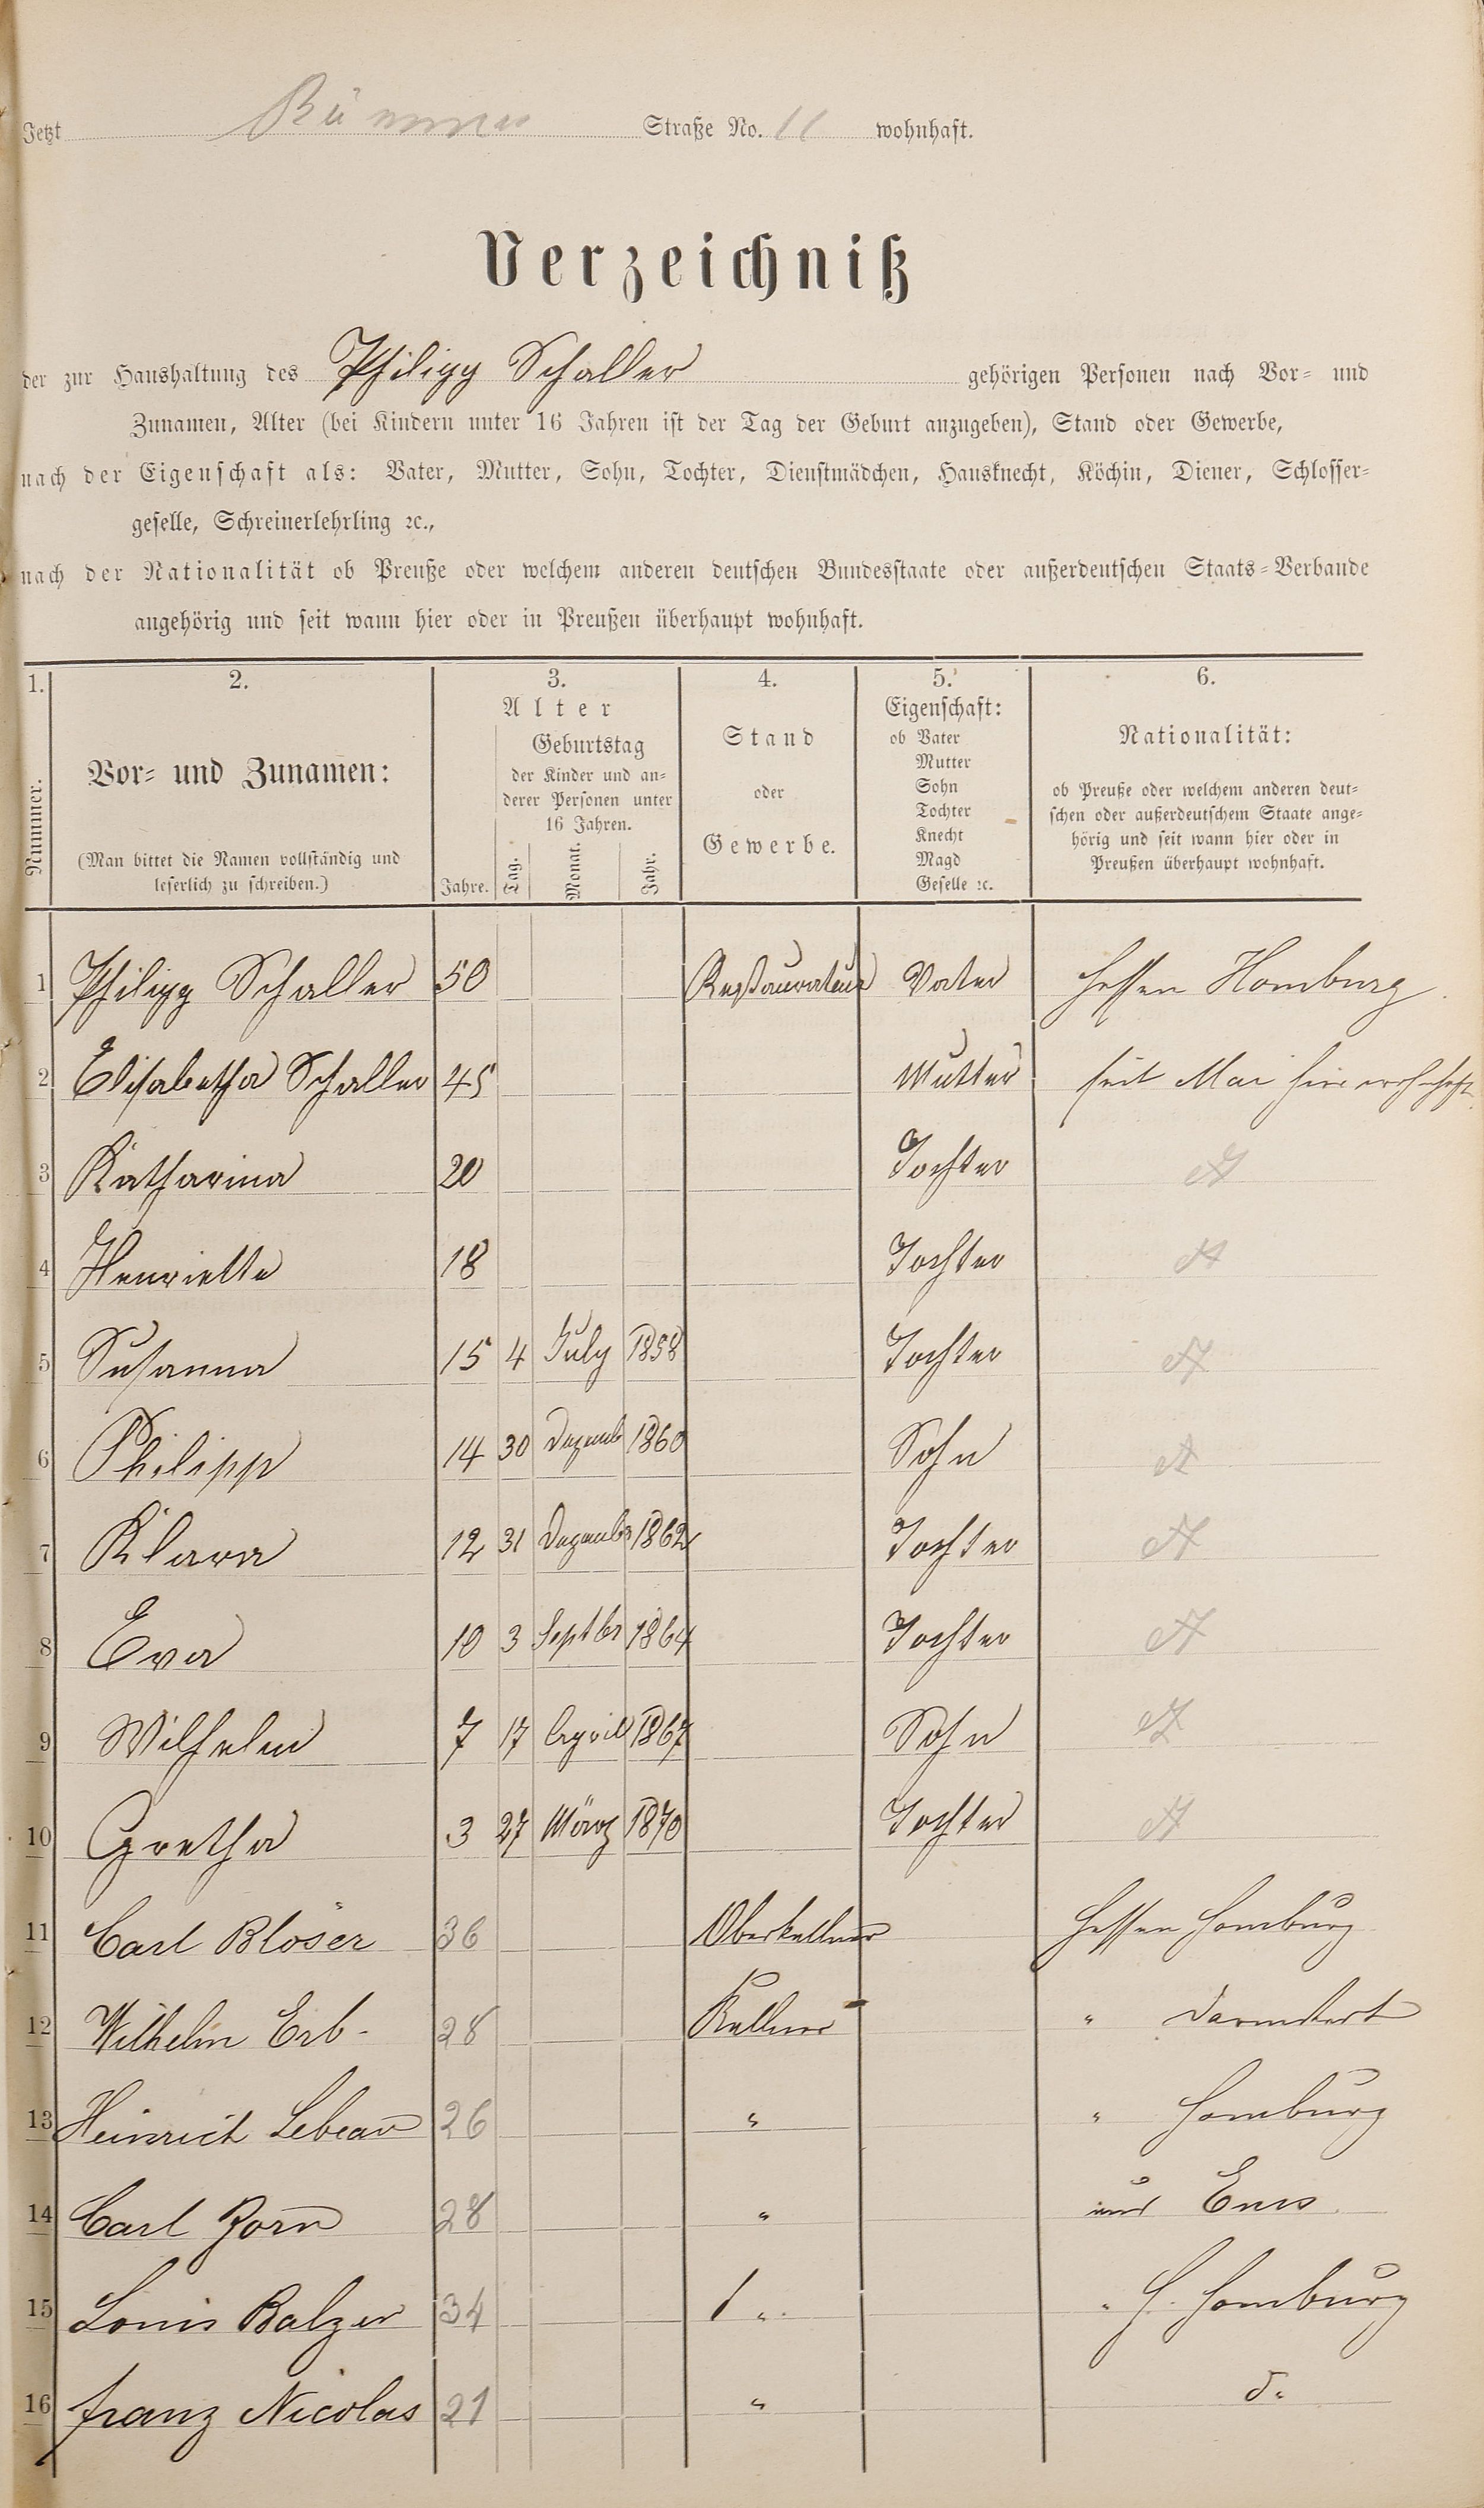 Jetzt Straße No. 11 wohnhaft.
Verzeichniß
der zur Haushaltung des Philipp Schaller gehörigen Personen nach Vor- und
Zunamen, Alter (bei Kindern unter 16 Jahren ist der Tag der Geburt anzugeben), Stand oder Gewerbe,
nach der Eigenschaft als: Vater, Mutter, Sohn, Tochter, Dienstmädchen, Hausknecht, Köchin, Diener, Schlosser-
geselle, Schreinerlehrling ꝛc.,
nach der Nationalität ob Preuße oder welchem anderen deutschen Bundesstaate oder außerdeutschen Staats-Verbande
angehörig und seit wann hier oder in Preußen überhaupt wohnhaft.
1. 2. 3. 4. 5. 6.
Nummer.
Vor- und Zunamen:
(Man bittet die Namen vollständig und
leserlich zu schreiben.)
Alter
Jahre.
Geburtstag
der Kinder und an-
derer Personen unter
16 Jahren.
Tag. Monat. Jahr.
Stand
oder
Gewerbe.
Eigenschaft:
ob Vater
Mutter
Sohn
Tochter
Knecht
Magd
Geselle ꝛc.
Nationalität:
ob Preuße oder welchem anderen deut-
schen oder außerdeutschem Staate ange-
hörig und seit wann hier oder in
Preußen überhaupt wohnhaft.
1 Philipp Schaller 50 Restaurateur Vater Hessen Homburg
2 Elisabetha Schaller 45 Mutter seit Mai hier wohnhaft
3 Katharina 20 Tochter
4 Henriette 18 Tochter
5 Susanna 15 4 July 1858 Tochter
6 Philipp 14 30 Dezemb 1860 Sohn
7 Klara 12 31 Dezembr 1862 Tochter
8 Eva 10 3 Septbr 1864 Tochter
9 Wilhelm 7 17 April 1867 Sohn
10 Gretha 3 27 März 1870 Tochter
11 Carl Blöser 36 Oberkellner Hessen Homburg
12 Wilhelm Erb- 28 Kellner " Darmstadt
13 Heinrich Lebeau 26 " " Homburg
14 Carl Zorn 28 " Ems
15 Louis Balzer 34 " " H. Homburg
16 Franz Nicolas 21 " d.